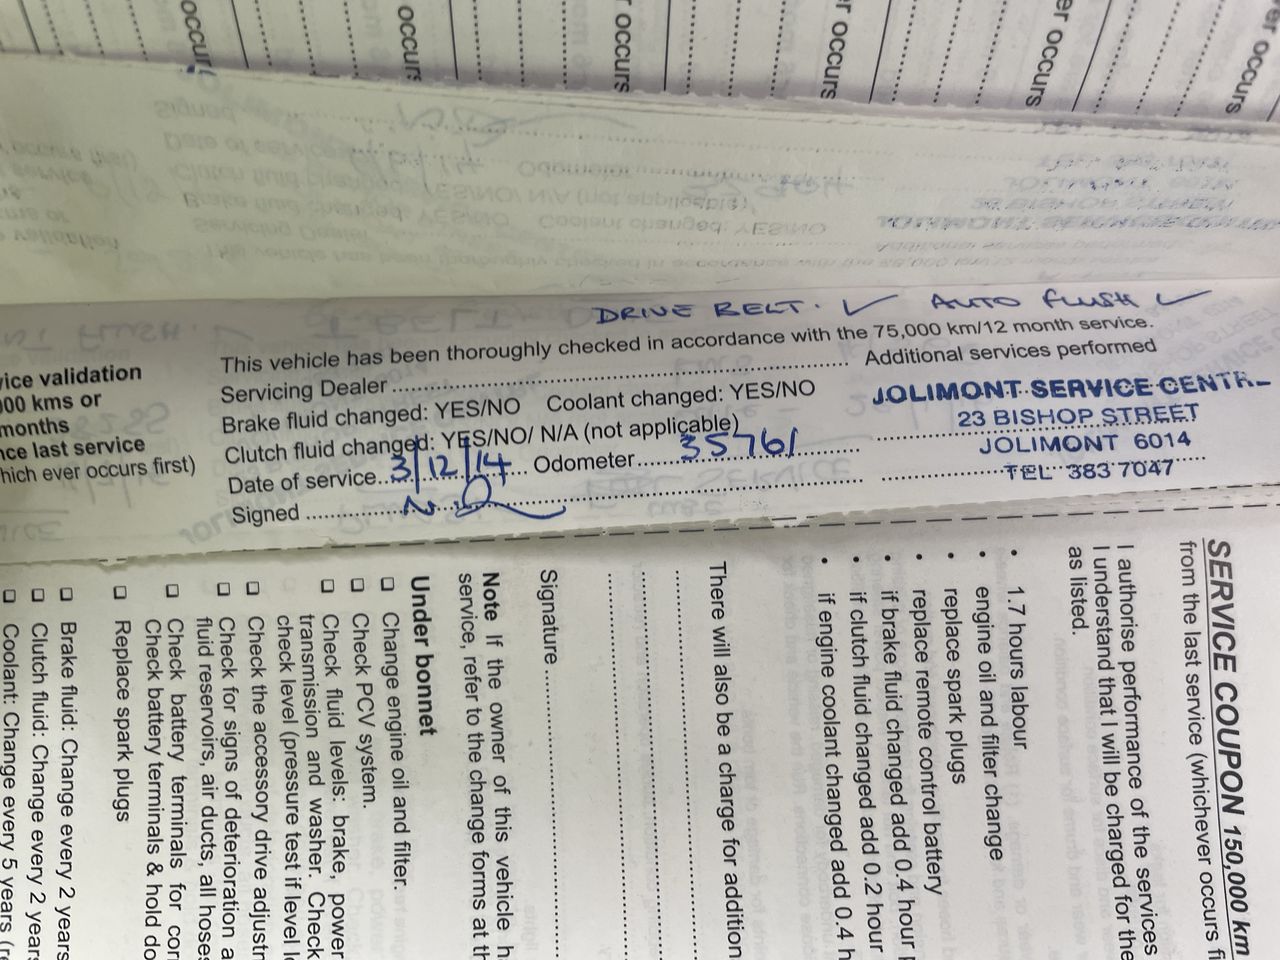 occurs
occurs
occurs
er occurs
er occurs
er occurs
DRIVE BELT. ✓ AUTO FLUSH ✓
This vehicle has been thoroughly checked in accordance with the 75,000 km/12 month service.
Servicing Dealer ........ Additional services performed
Brake fluid changed: YES/NO Coolant changed: YES/NO
Clutch fluid changed: YES/NO/ N/A (not applicable)
Date of service... 3/12/14 ... Odometer ... 35761
Signed ........
vice validation
000 kms or
months
nce last service
hich ever occurs first)
JOLIMONT SERVICE CENTR
23 BISHOP STREET
JOLIMONT 6014
TEL 383 7047
SERVICE COUPON 150,000 km
from the last service (whichever occurs fi
I authorise performance of the services
I understand that I will be charged for the
as listed.
• 1.7 hours labour
• engine oil and filter change
• replace spark plugs
• replace remote control battery
• if brake fluid changed add 0.4 hour
• if clutch fluid changed add 0.2 hour
• if engine coolant changed add 0.4 h
There will also be a charge for addition
Signature ........
Note If the owner of this vehicle h
service, refer to the change forms at th
Under bonnet
❑ Change engine oil and filter.
❑ Check PCV system.
❑ Check fluid levels: brake, power
transmission and washer. Check
check level (pressure test if level l
❑ Check the accessory drive adjustn
❑ Check for signs of deterioration a
fluid reservoirs, air ducts, all hoses
❑ Check battery terminals for corr
Check battery terminals & hold do
❑ Replace spark plugs
❑ Brake fluid: Change every 2 years
❑ Clutch fluid: Change every 2 years
❑ Coolant: Change every 5 years (re